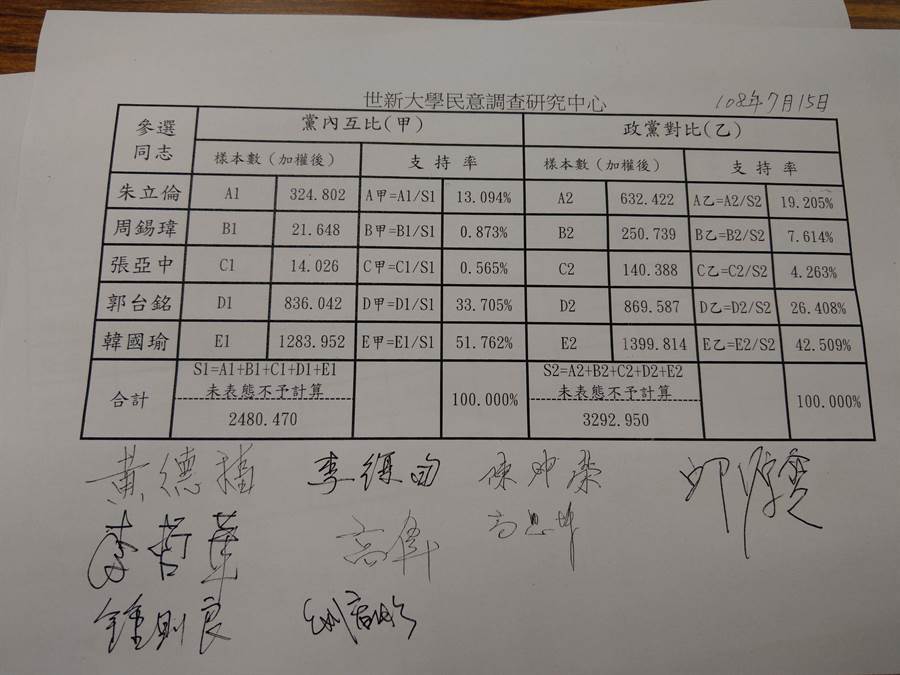 世新大學民意調查研究中心 108年7月15日
參選同志 黨內互比(甲) 政黨對比(乙)
樣本數(加權後) 支持率 樣本數(加權後) 支持率
朱立倫 A1 324.802 A甲=A1/S1 13.094% A2 632.422 A乙=A2/S2 19.205%
周錫瑋 B1 21.648 B甲=B1/S1 0.873% B2 250.739 B乙=B2/S2 7.614%
張亞中 C1 14.026 C甲=C1/S1 0.565% C2 140.388 C乙=C2/S2 4.263%
郭台銘 D1 836.042 D甲=D1/S1 33.705% D2 869.587 D乙=D2/S2 26.408%
韓國瑜 E1 1283.952 E甲=E1/S1 51.762% E2 1399.814 E乙=E2/S2 42.509%
合計 S1=A1+B1+C1+D1+E1 未表態不予計算 2480.470 100.000% S2=A2+B2+C2+D2+E2 未表態不予計算 3292.950 100.000%
黃德 陳坤榮
李哲華 高偉 高思坤
鍾則良